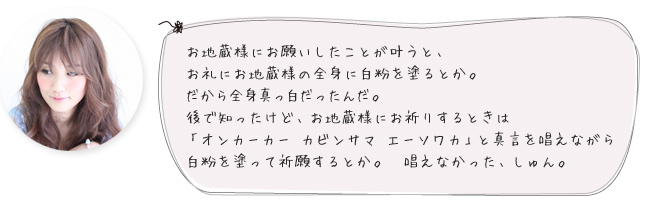 お地蔵様にお願いしたことが叶うと、
お礼にお地蔵様の全身に白粉を塗るとか。
だから全身真っ白だったんだ。
後で知ったけど、お地蔵様にお祈りするときは
「オンカーカー カビンサマ エーソワカ」と真言を唱えながら
白粉を塗って祈願するとか。 唱えなかった、しゅん。